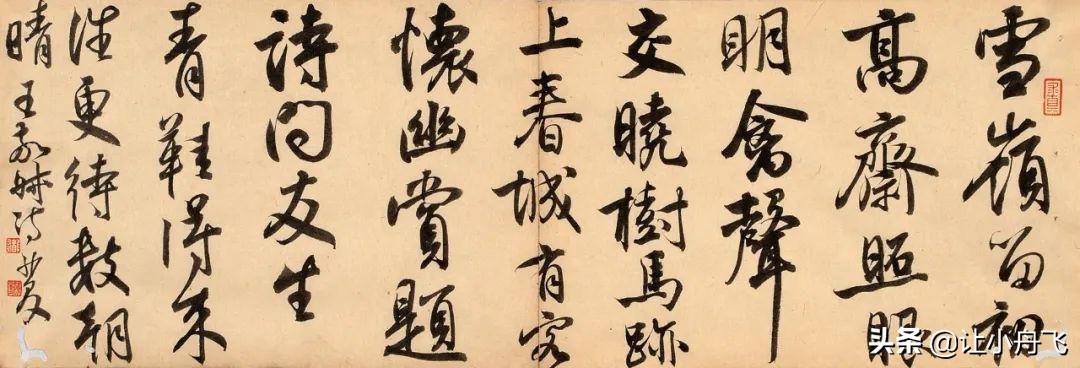 雪嶺留初
高齋照眼
明禽聲
交曉樹馬跡
上春城有客
懷幽賞題
詩問友生
青鞋得未
往更待數朝
晴
王
头条 @让小舟飞